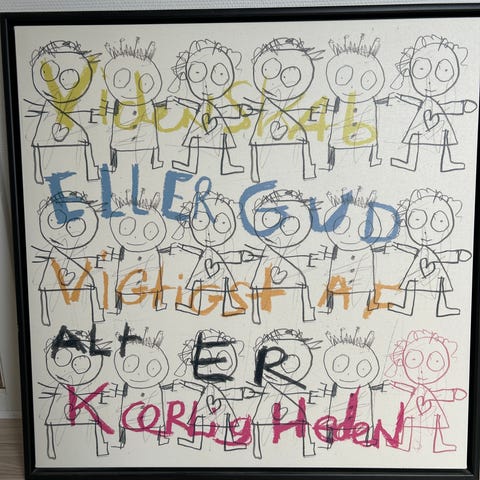 Videnskab
ELLER GUD
Vigtigst AF
ALt ER
KæRLigHeden